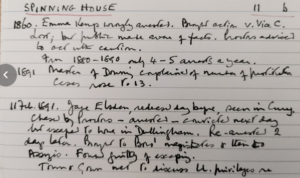 SPINNING HOUSE 11 b
1860. Emma Kemp wrongly arrested. Brought action v. Vice C.
Lost, but public made aware of facts. Proctors advised
to act with caution.
From 1880-1890 only 4-5 arrests a year.
1891 Master of Downing complained of number of prostitutes
Cases rose to 13.
11 Feb. 1891. Jane Elsden, released day before, seen in
chased by Proctors - arrested - convicted next day
but escaped to home in Dullingham. Re-arrested 2
days later. Brought to Boro' magistrates & then to
Assizes. Found guilty of escaping.
Town & Gown met to discuss U. privileges re